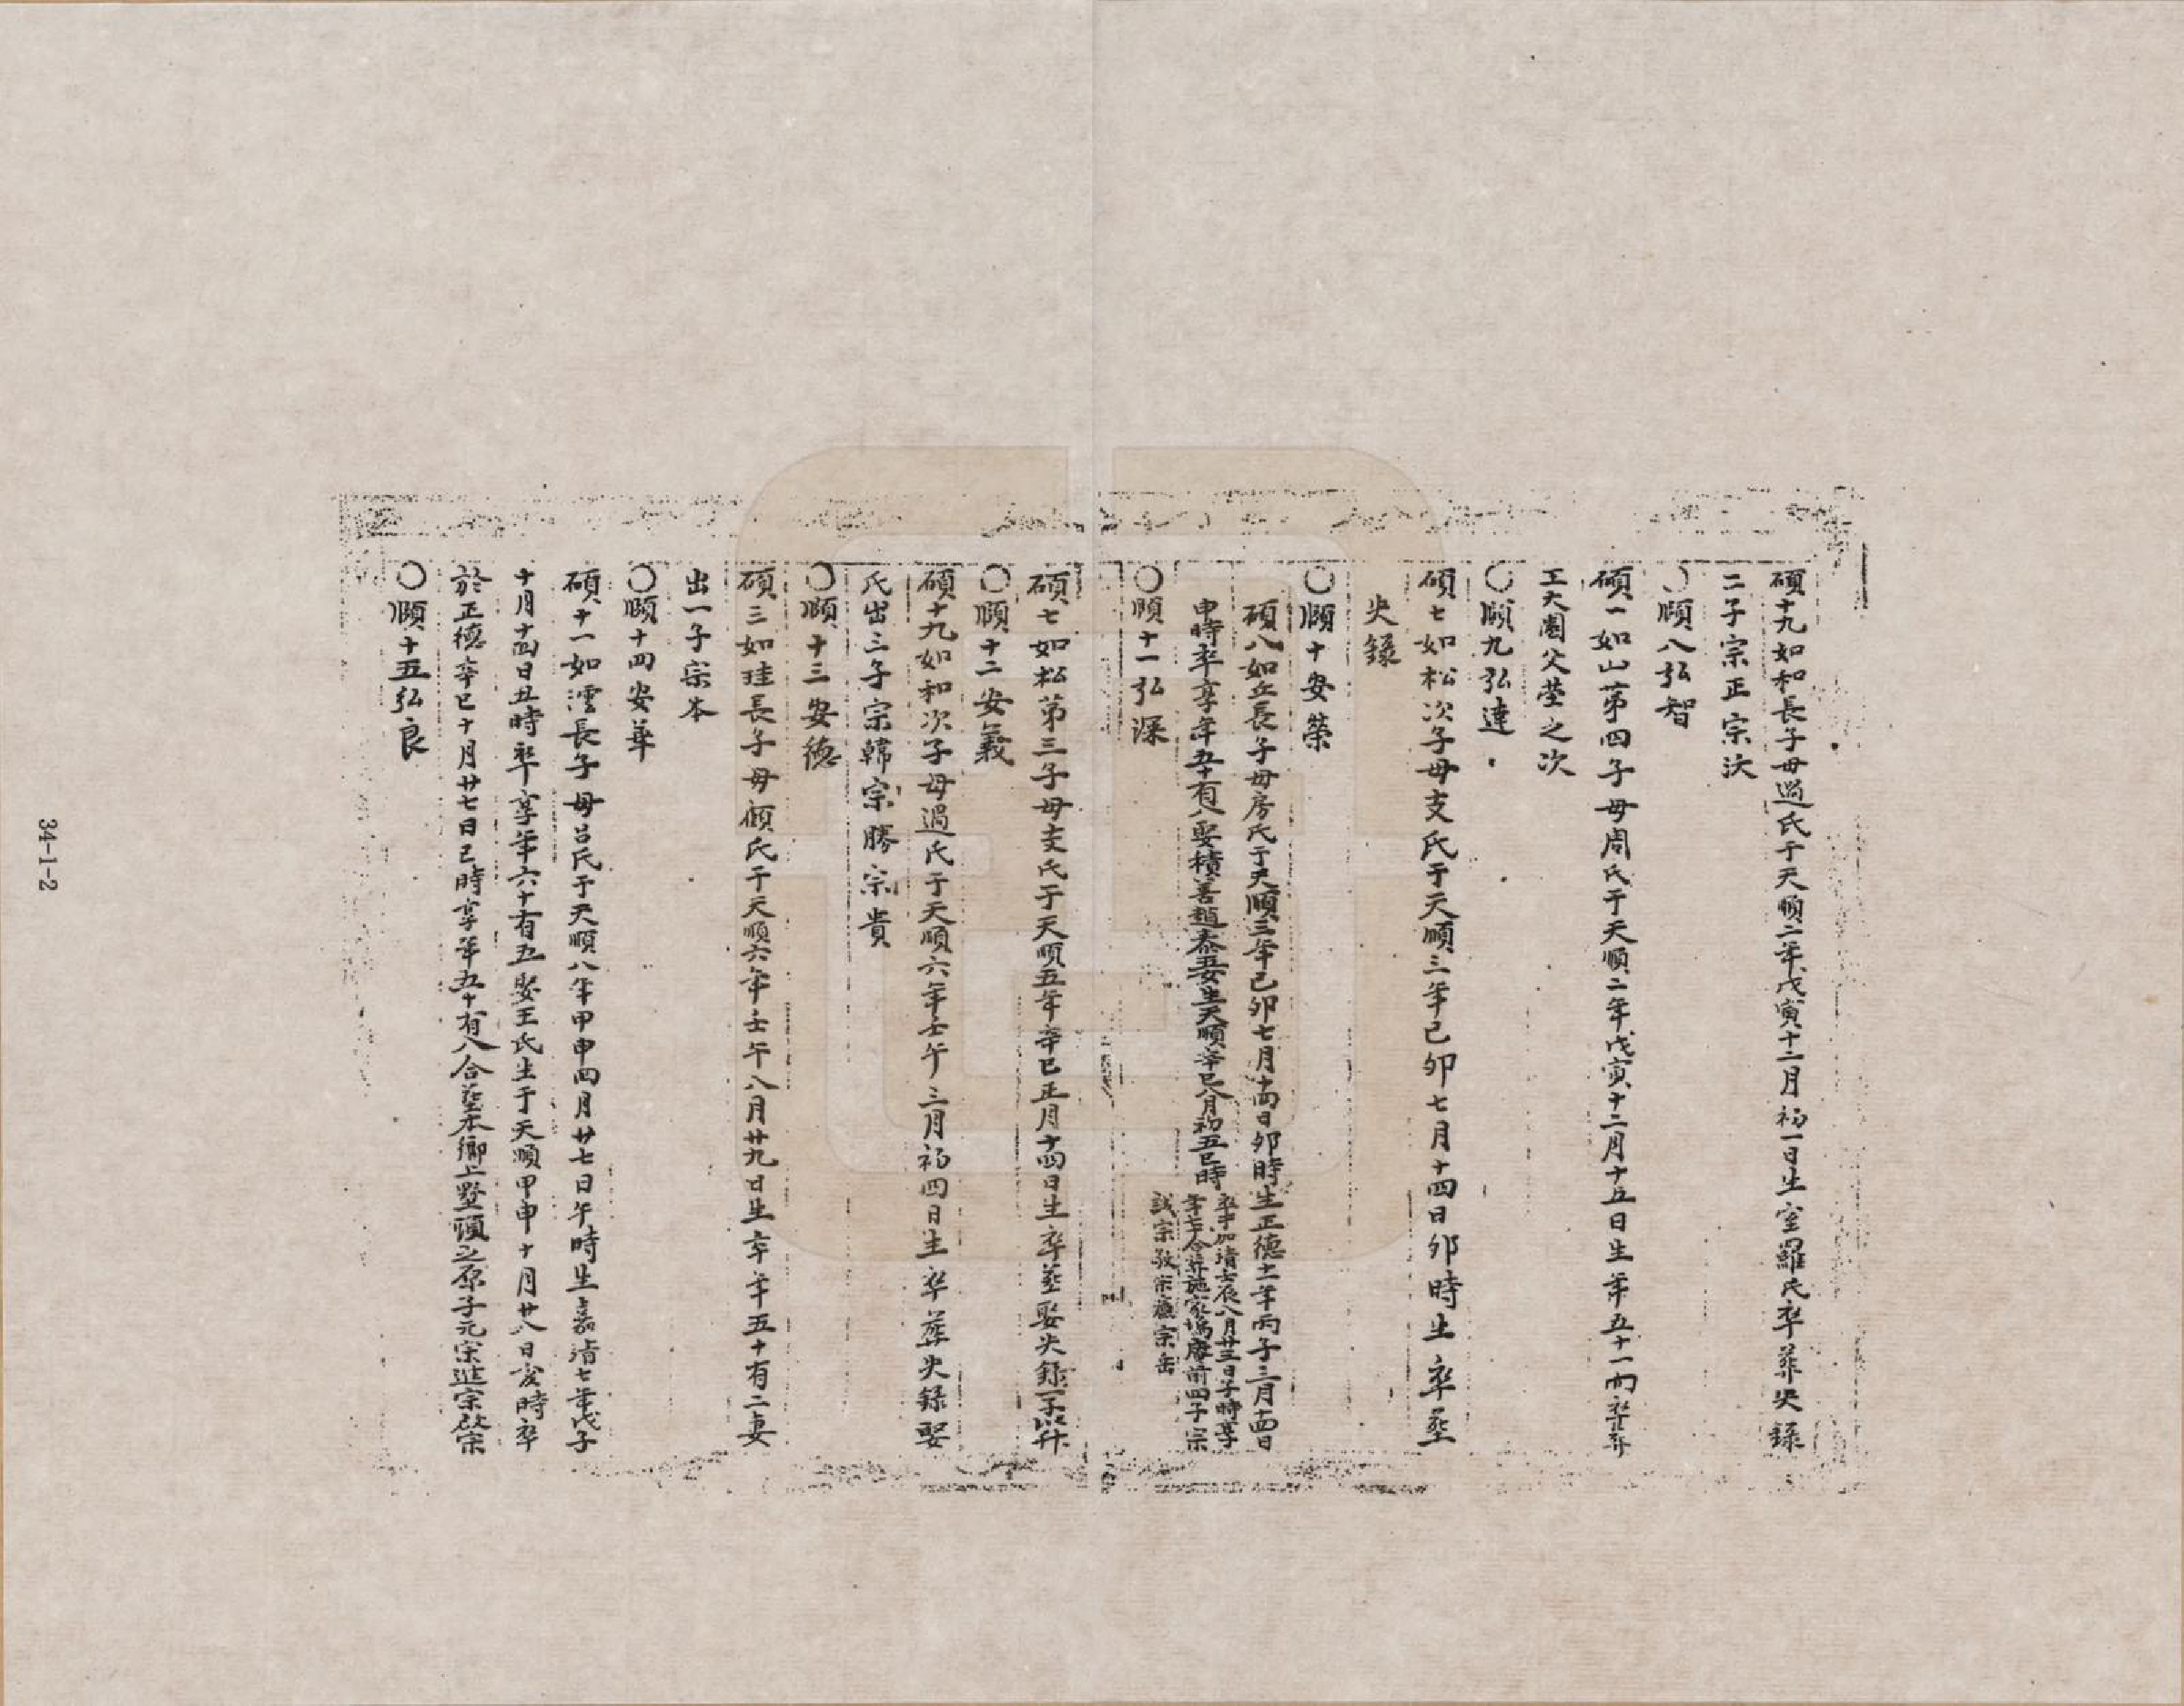 碩十九如和長子母過氏于天順二年戊寅十二月初一日生室羅氏卒葬失錄
二子宗正宗汏
〇順八弘智
碩一如山第四子母周氏于天順二年戊寅十二月十五日生年五十一而卒葬
工大園父塋之次
〇順九弘達
碩七如松次子母支氏于天順三年己卯七月十四日卯時生卒塟
失錄
〇順十安榮
碩八如丘長子母房氏于天順三年己卯七月十四日卯時生正德十一年丙子三月十四日
申時卒享年五十有八娶積善趙泰五女生天順辛巳八月初五巳時
卒于加靖壬辰八月廿三日子時享
年七十二合葬施家塢廟前四子宗
誠宗敬宗宗岳
〇順十一弘深
碩七如松第三子母支氏于天順五年辛巳正月十四日生卒塟娶失錄一子以升
〇順十二安義
碩十九如和次子母過氏于天順六年壬午三月初四日生卒葬失録娶
氏出三子宗韓宗勝宗貴
〇順十三安德
碩三如珪長子母顧氏于天順六年壬午八月廿九日生卒年五十有二妻
出一子宗岑
〇順十四安華
碩十一如澐長子母呂氏于天順八年甲申四月廿七日午時生嘉靖七年戊子
十月十四日丑時卒享年六十有五娶王氏生于天順甲申十月廿八日亥時卒
於正德辛巳十月廿七日巳時享年五十有八合塟本鄉上墅頭之原子元宗進宗啟宗
〇順十五弘良
34-1-2